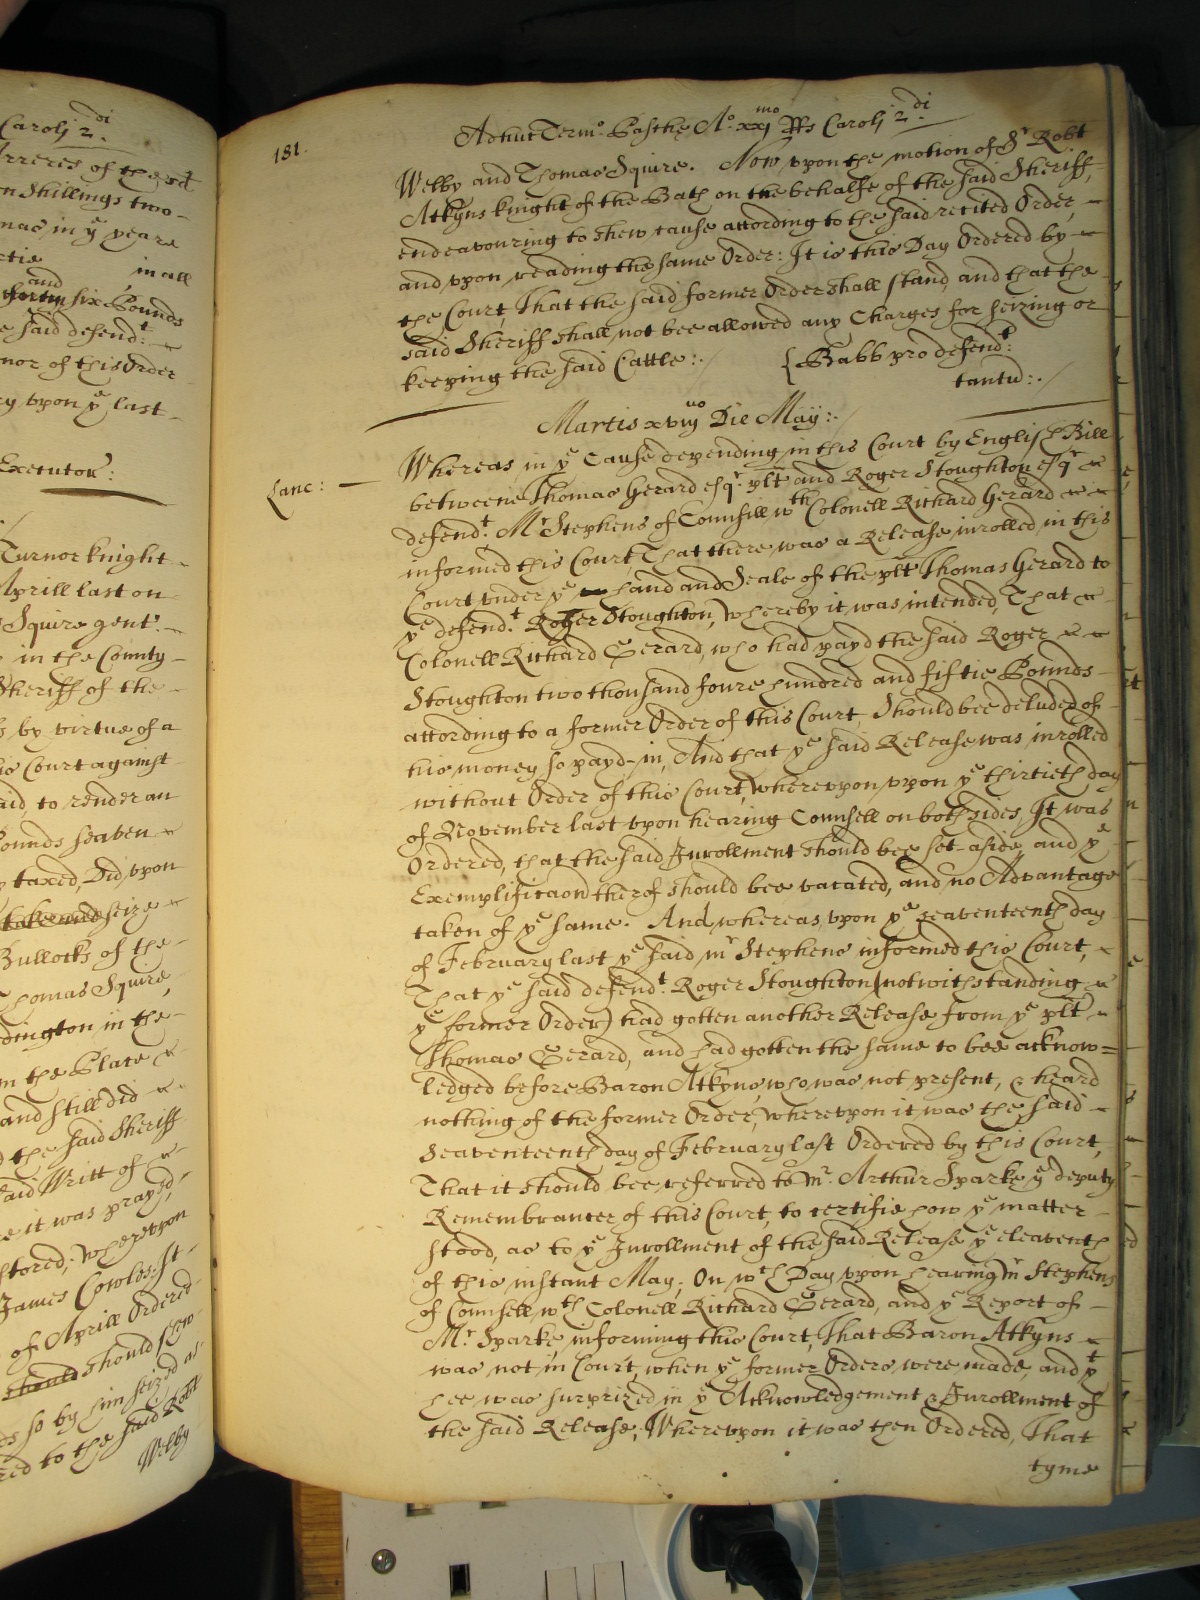 Carolj 2di.
Arreres of the sd
n Shillings two
mas, in ye yeare
in all
and
six Pounds
e said defendt:
nor of this Order
upon ye last
Executor:
Turnor knight
Aprill last on
Squire gent:
in the County
Sheriff of the
by virtue of a
Court against
aid, to render an
ounds seaven
taxed, Did, upon
seize
Bullocks of the
Thomas Squire,
dington in the
m the Place
and still did
the said Sheriff
aid Writt of
e it was prayed,
stored; whereupon
James Cowles: It
of Aprill Ordered
should shew
so by him seized as
red to the said Robt
Welby
181.
Adhuc Termo. Pasche Ao. xximo RRs Carolj 2di.
Welby and Thomas Squire. Now upon the motion of Sr Robt
Atkyns knight of the Bath on the behalfe of the said Sheriff,
endeavouring to shew cause according to the said recited Order,
and upon reading the same Order: It is this Day Ordered by
the Court That the said former Order shall stand, and that the
said Sheriff shall not bee allowed any Charges for seizing or
keeping the said Cattle:. { Babb pro defendt:
tantu:.
Martis xviijuo Die Maij:.
Lanc:
Whereas in ye Cause depending in this Court by English Bill
betweene Thomas Gerard esqr. plt and Roger Stoughton esqr
defendt. Mr Stephens of Counsill wth Colonell Richard Gerard
informed this Court, That there was a Release inrolled in this
Court under ye hand and Seale of the plt Thomas Gerard to
ye defendt. Roger Stoughton, whereby it was intended, That
Colonell Richard Gerard, who had payd the said Roger
Stoughton two thousand foure hundred and fiftie Pounds
according to a former Order of this Court, Should bee deluded of
his money so payd-in, And that ye said Release was inrolled
without Order of this Court, whereupon upon ye thirtieth day
of November last upon hearing Counsell on both sides, It was
Ordered, that the said Inrollment should bee set-aside, and ye
Exemplificaon therof should bee vacated, and no Advantage
taken of ye same. And whereas upon ye seaventeenth day
of February last ye said mr Stephens informed this Court,
That ye said defendt. Roger Stoughton (notwithstanding
ye former Order) had gotten another Release from ye plt
Thomas Gerard, and had gotten the same to bee acknow=
ledged before Baron Atkyns, who was not present, & heard
nothing of the former Order, whereupon it was the said
Seaventeenth day of February last Ordered by this Court,
That it should bee referred to Mr. Arthur Sparke ye deputy
Remembrancer of this Court, to certifie how ye matter
stood, as to ye Inrollment of the said Release ye eleaventh
of this instant May; On wch Day upon hearing Mr Stephens
of Counsell wth Colonell Richard Gerard, and ye Report of
Mr. Sparke, informing this Court, That Baron Atkyns
was not in Court, when ye former Orders were made, and yt
hee was surprized in ye Acknowledgement & Inrollment of
the said Release; Whereupon it was then Ordered, That
tyme